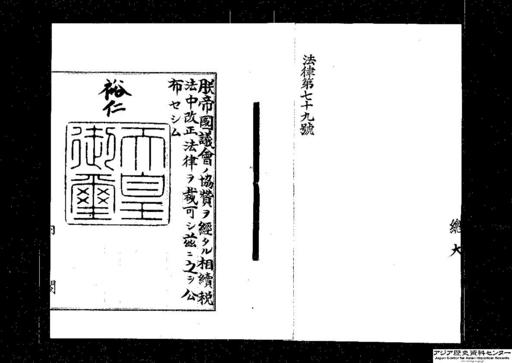 法律第七十九號
朕帝國議會ノ協贊ヲ經タル相續税
法中改正法律ヲ裁可シ茲ニ之ヲ公
布セシム
裕仁
天皇
御璽
内閣
總
大
アジア歴史資料センター
Japan Center for Asian Historical Records